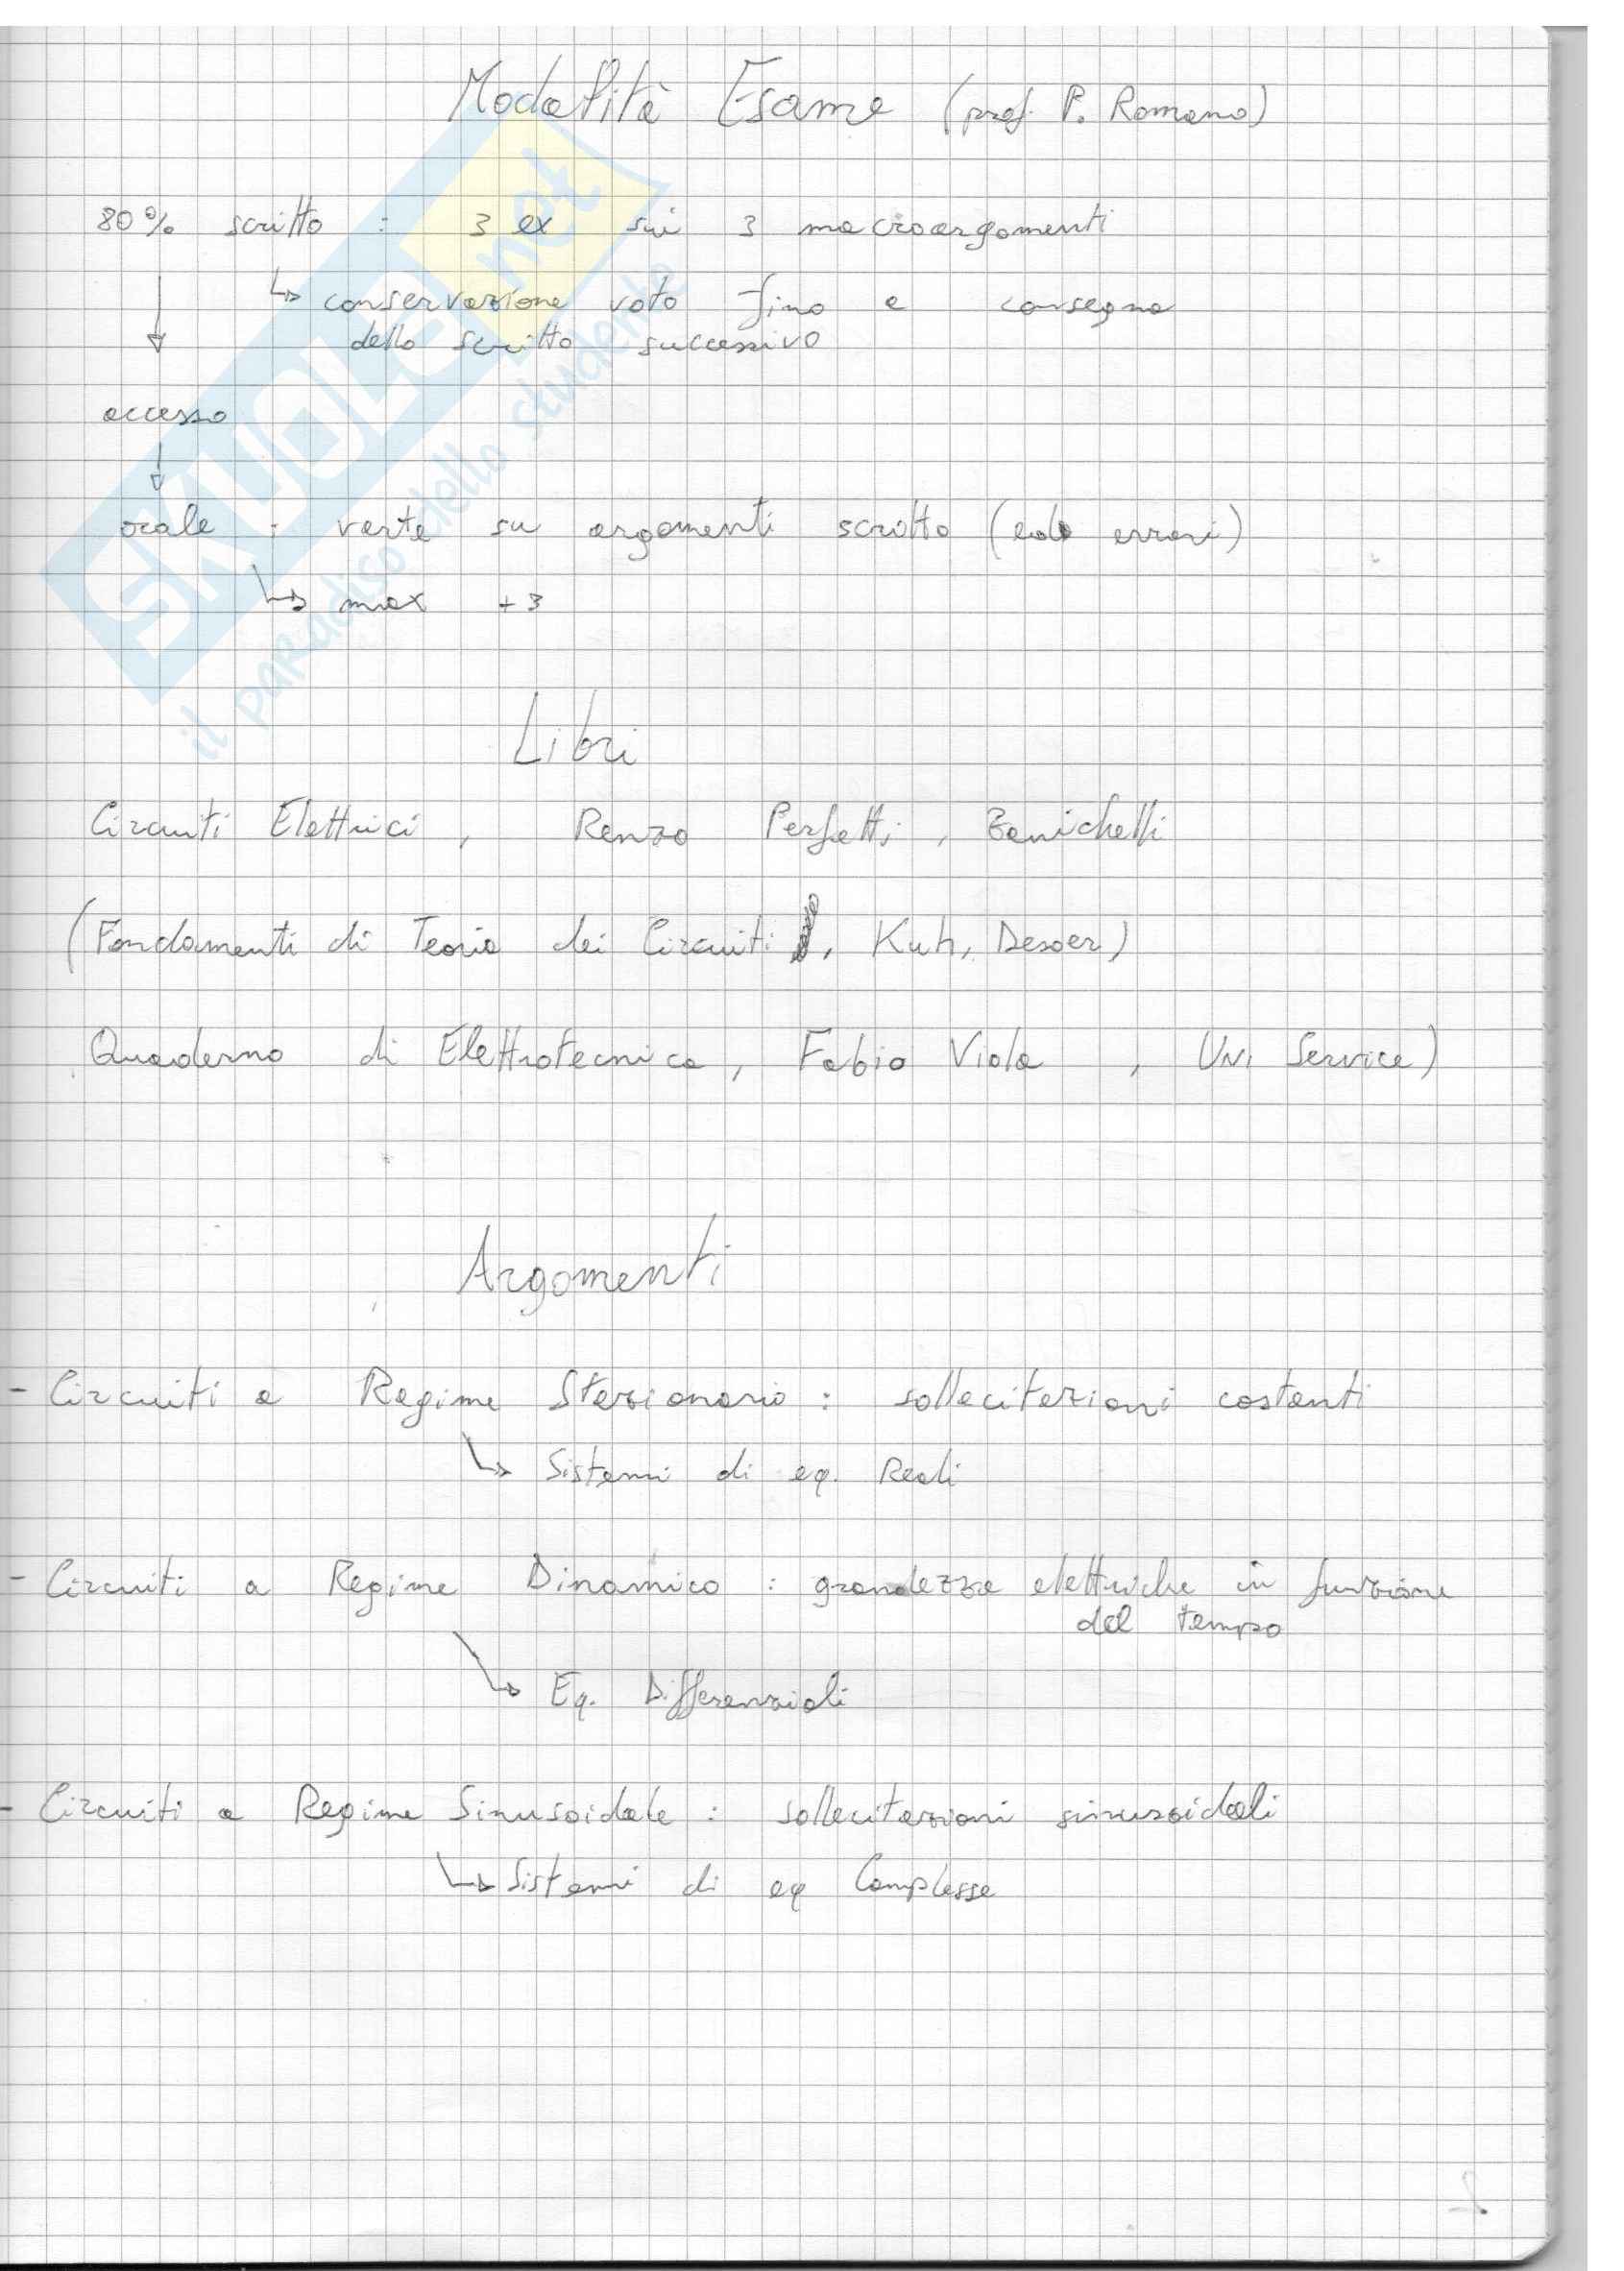 Modalità Esame (prof. P. Romano)
80% scritto : 3 ex sui 3 macroargomenti
↳ conservazione voto fino a consegna
dello scritto successivo
accesso
orale : verte su argomenti scritto (ed errori)
↳ max +3
Libri
Circuiti Elettrici, Renzo Perfetti, Zanichelli
(Fondamenti di Teoria dei Circuiti, Kuh, Desoer)
Quaderno di Elettrotecnica, Fabio Viola, Uni Service)
Argomenti
- Circuiti a Regime Stazionario : sollecitazioni costanti
↳ Sistemi di eq. Reali
- Circuiti a Regime Dinamico : grandezze elettriche in funzione
del tempo
↳ Eq. Differenziali
- Circuiti a Regime Sinusoidale : sollecitazioni sinusoidali
↳ Sistemi di eq Complesse
SKUOLA.net
il paradiso dello studente